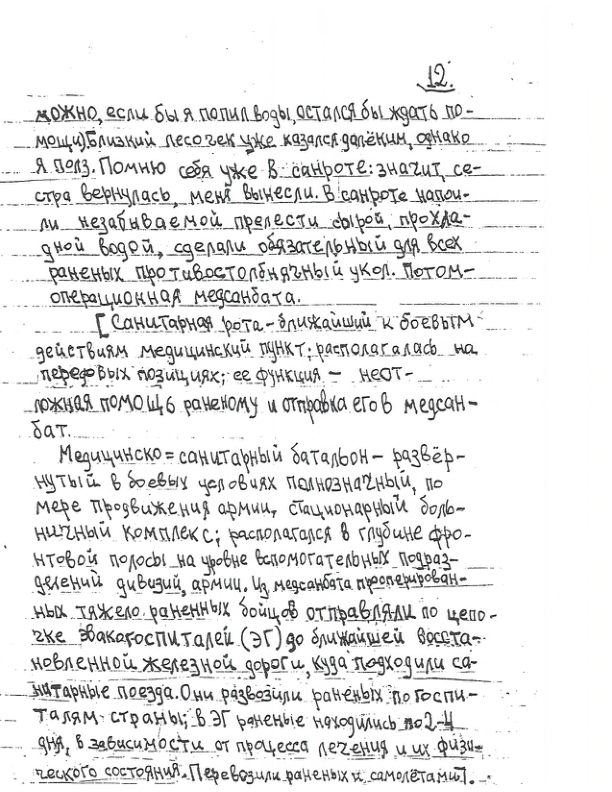 12.
можно, если бы я попил воды, остался бы ждать по-
мощи) Близкий лесочек уже казался далёким, однако
я полз. Помню себя уже в санроте: значит, се-
стра вернулась, меня вынесли. В санроте напои-
ли незабываемой прелести сырой, прохла-
дной водой, сделали обязательный для всех
раненых противостолбнячный укол. Потом-
операционная медсанбата.
[Санитарная рота - ближайший к боевым
действиям медицинский пункт; располагалась на
передовых позициях; ее функция - неот-
ложная помощь раненому и отправка его в медсан-
бат.
Медицинско=санитарный батальон - развёр-
нутый в боевых условиях полнозначный, по
мере продвижения армии, стационарный боль-
ничный комплекс; располагался в глубине фро-
нтовой полосы на уровне вспомогательных подраз-
делений дивизий, армии. Из медсанбата прооперирован-
ных тяжело раненных бойцов отправляли по цепо-
чке эвакогоспиталей (ЭГ) до ближайшей восста-
новленной железной дороги, куда подходили са-
нитарные поезда. Они развозили раненых по госпи-
талям страны; в ЭГ раненые находились по 2-4
дня, в зависимости от процесса лечения и их физи-
ческого состояния. Перевозили раненых и самолётами].